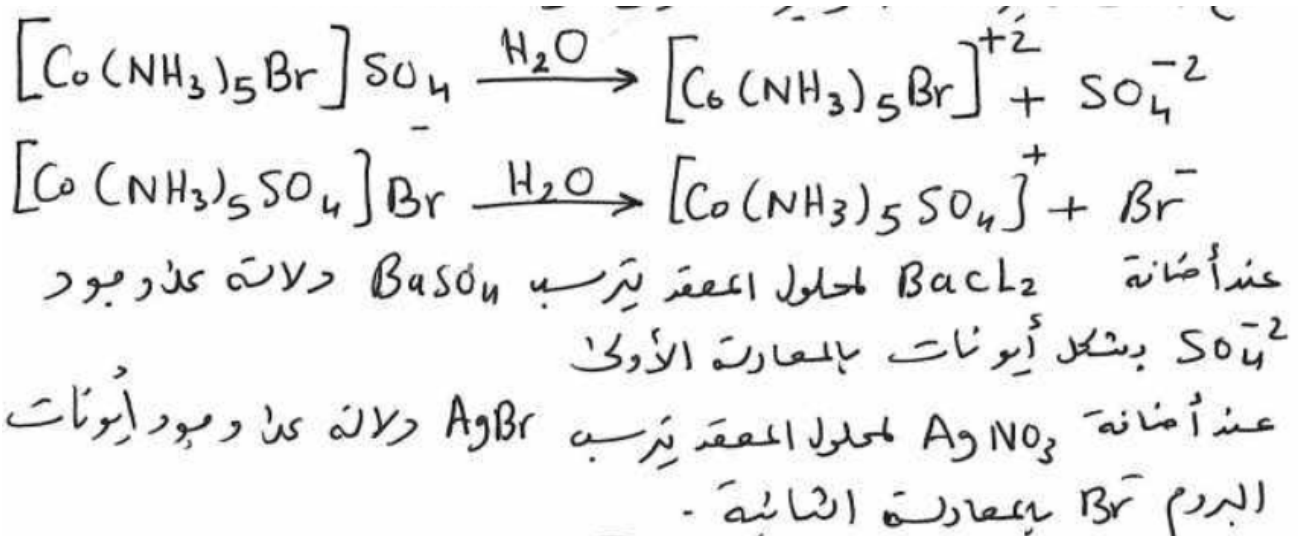 [Co(NH₃)₅Br]SO₄ —H₂O→ [Co(NH₃)₅Br]⁺² + SO₄⁻²
[Co(NH₃)₅SO₄]Br —H₂O→ [Co(NH₃)₅SO₄]⁺ + Br⁻
عند أضافة BaCL₂ لمحلول المعقد يترسب BaSO₄ دلالة على وجود
SO₄⁻² بشكل أيونات بالمعادلة الأولى
عند أضافة AgNO₃ لمحلول المعقد يترسب AgBr دلالة على وجود أيونات
البروم Br⁻ بالمعادلة الثانية .